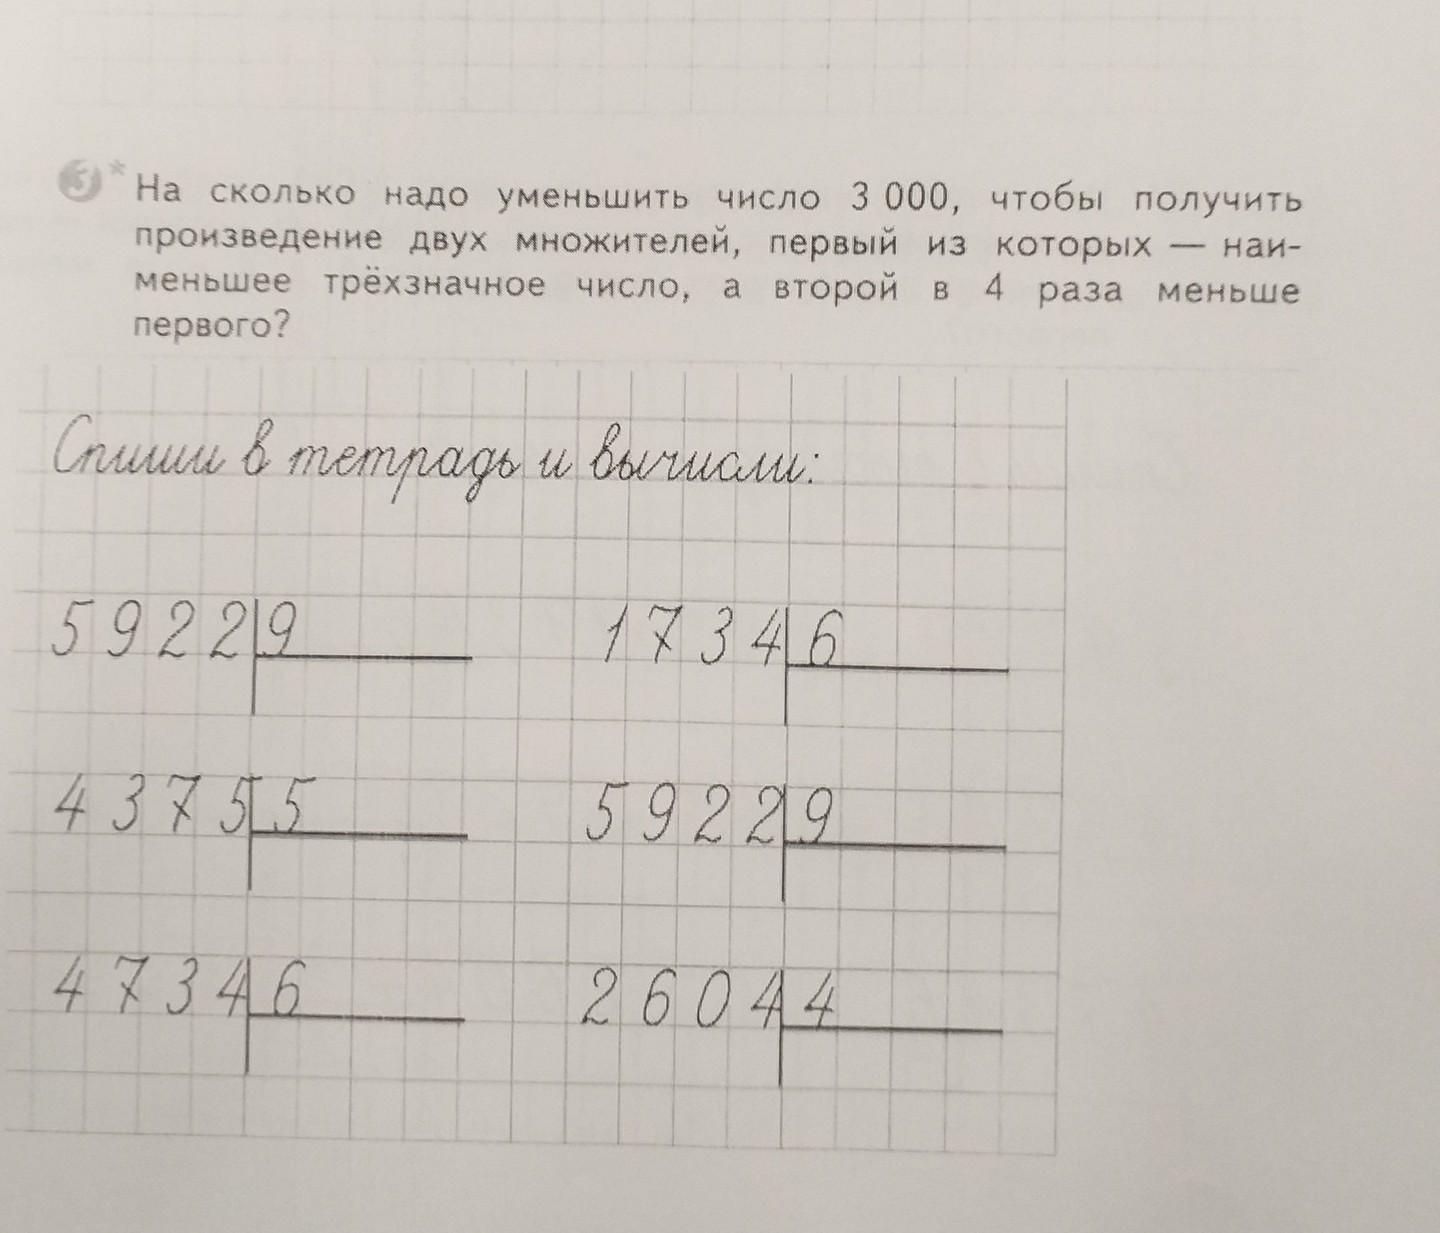 3* На сколько надо уменьшить число 3 000, чтобы получить
произведение двух множителей, первый из которых — наи-
меньшее трёхзначное число, а второй в 4 раза меньше
первого?
Спиши в тетрадь и вычисли:
5922 9 1734 6
4375 5 5922 9
4734 6 2604 4